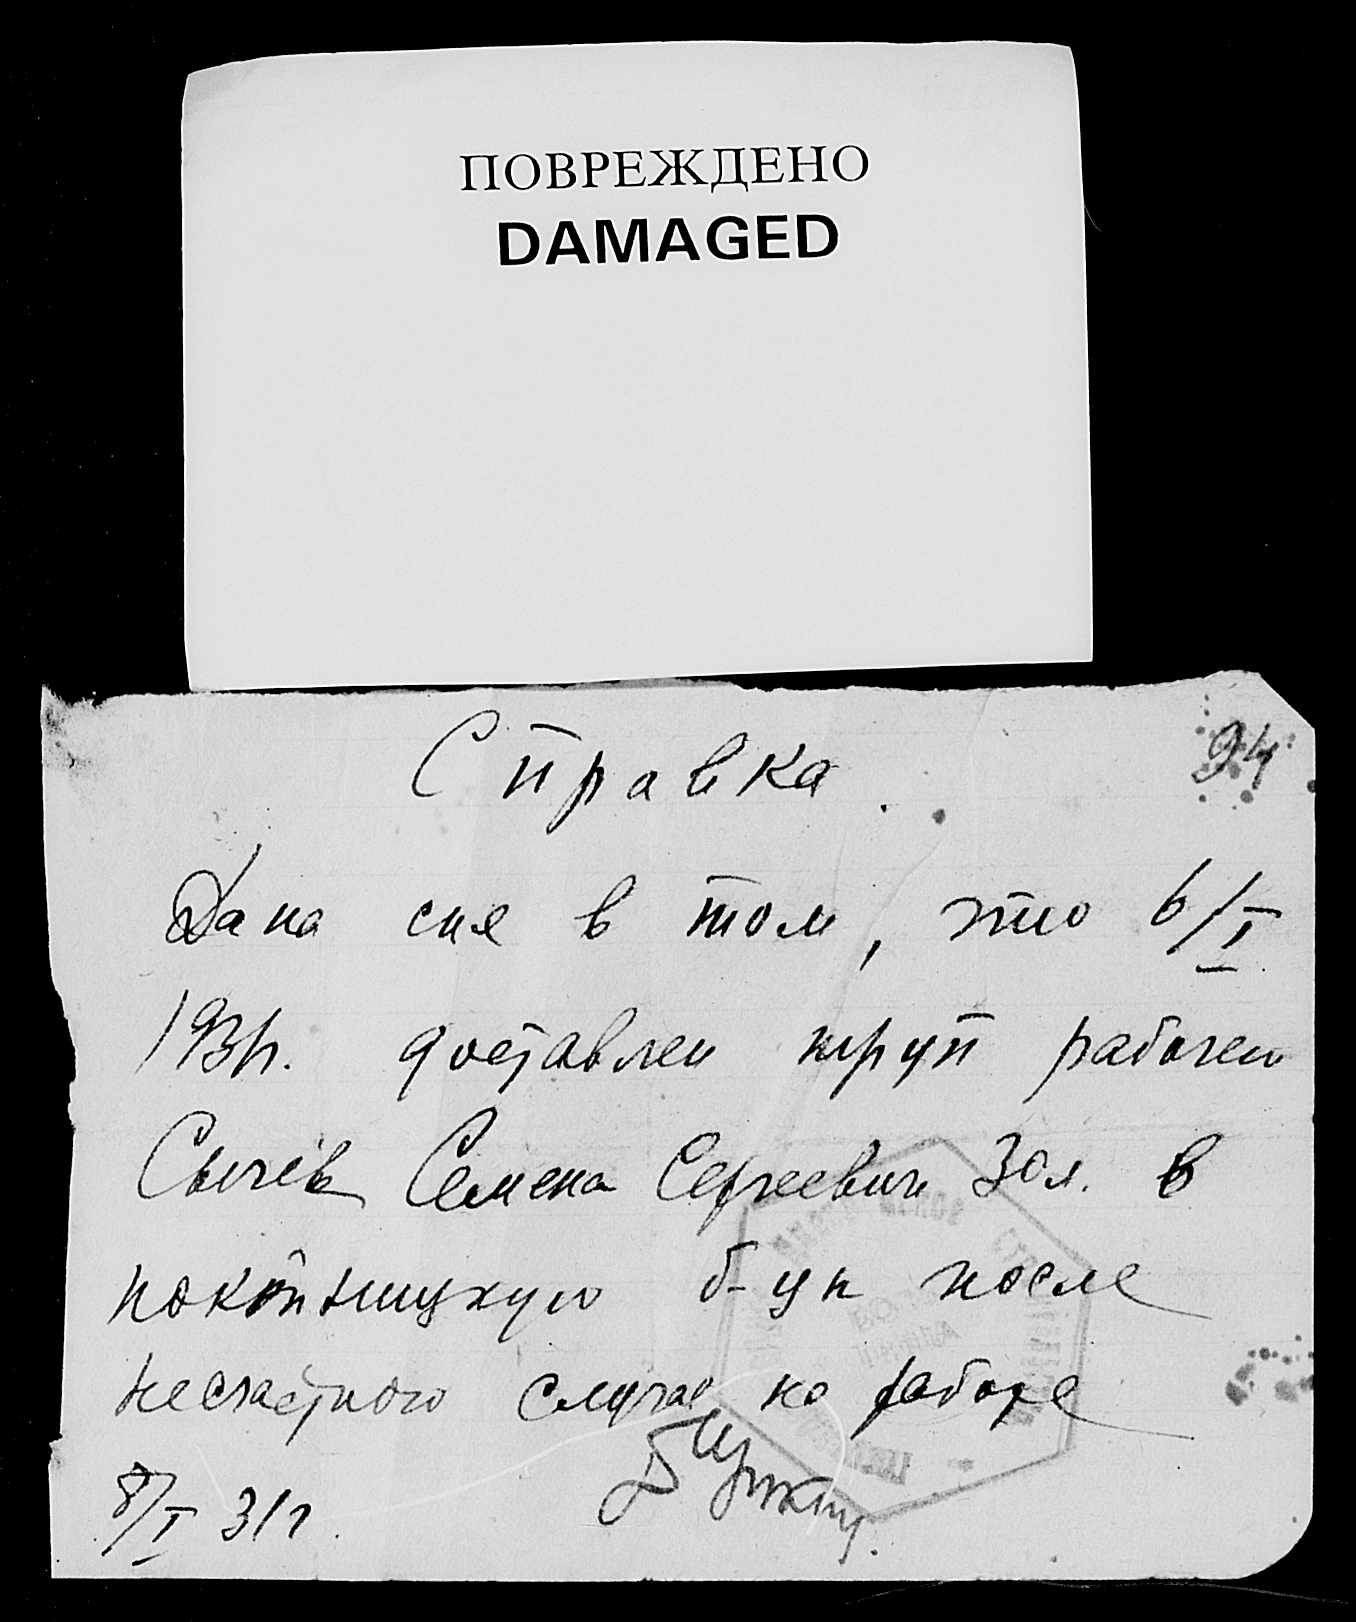 ПОВРЕЖДЕНО
DAMAGED
Справка
94
Дана сия в том, что 6/I
1931г. доставлен труп рабочего
Сычёв Семена Сергеевич 30л. в
б-цу после
несчастного случая на работе
8/I 31г.